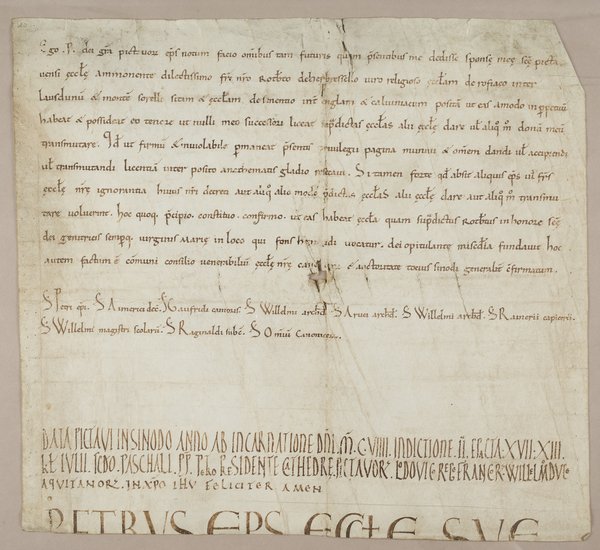 Ego .P. dei gr̃a pictavor̃ ep̃s notum facio om̃ibus tam futuris quam p̃sentibus me dedisse sponse mee sc̃e picta
vensi eccl̃e ammonente dilectissimo fr̃e nr̃o Rotb̃to deherbressello viro religioso eccl̃am de rosiaco inter
Lausdunũ & montẽ sorelli sitam & eccl̃am. de sentio int̃ englam & calviniacum positã ut eas amodo in perpetuũ
habeat & possideat eo tenore ut nulli meo successori liceat sup̃dictas eccl̃as alii eccl̃e dare ul̃ aliq̃ m̃ donũ meũ
transmutare. Qd̃ ut firmũ & inviolabile p̃maneat p̃senti privilegii pagina munivi & om̃em dandi ul̃ accipiendi
ul̃ transmutandi licentiã inter posito anathematis gladio resecavi. Si tamen forte qd̃ absit aliquis ep̃s ul̃ fr̃s
eccl̃e nr̃e ignorantia huius nr̃i decreti aut alio modo p̃dictas eccl̃as alii eccl̃e dare aut aliq̃ m̃ transmu
tare voluerint. hoc quoq; p̃cipio. constituo. confirmo. ut eas habeat eccl̃a quam sup̃dictus Rotb̃tus in honore sc̃e
dei genitricis semp̃q; virginis Marie in loco qui fons vocatur. dei opitulante mis̃cdĩa fundavit hoc
autem factum ẽ cõmuni consilio venerabiliũ eccl̃e nr̃e & auctoritate tocius sinodi generalit̃ cf̃irmatum.
S Petri ep̃i. S Aimerici dec̃. S Gaufridi cantoris. S Willelmi archid̃. S Arvei archid̃. S Willelmi archid̃. S Rainerii capicerii.
S Willelmi magistri scolarũ. S Raginaldi subc̃. S Om̃iũ Canonicor̃.
DATA PICTAVI IN SINODO ANNO AB INCARNATIONE DÑI .M̃.C.VIIII. INDICTIONE .II. EPACTA.XVII.XIII.
KL̃ IVLII. SCDO. PASCHALI .PP. PETRO RESIDENTE CATHEDRE PICTAVOR̃. LODOVICO REGE FRANCOR̃. WILLELMO DVCE
AQVITANOR̃. IN XPO IHV FELICITER AMEN
PETRVS EPS ECCLE SVE